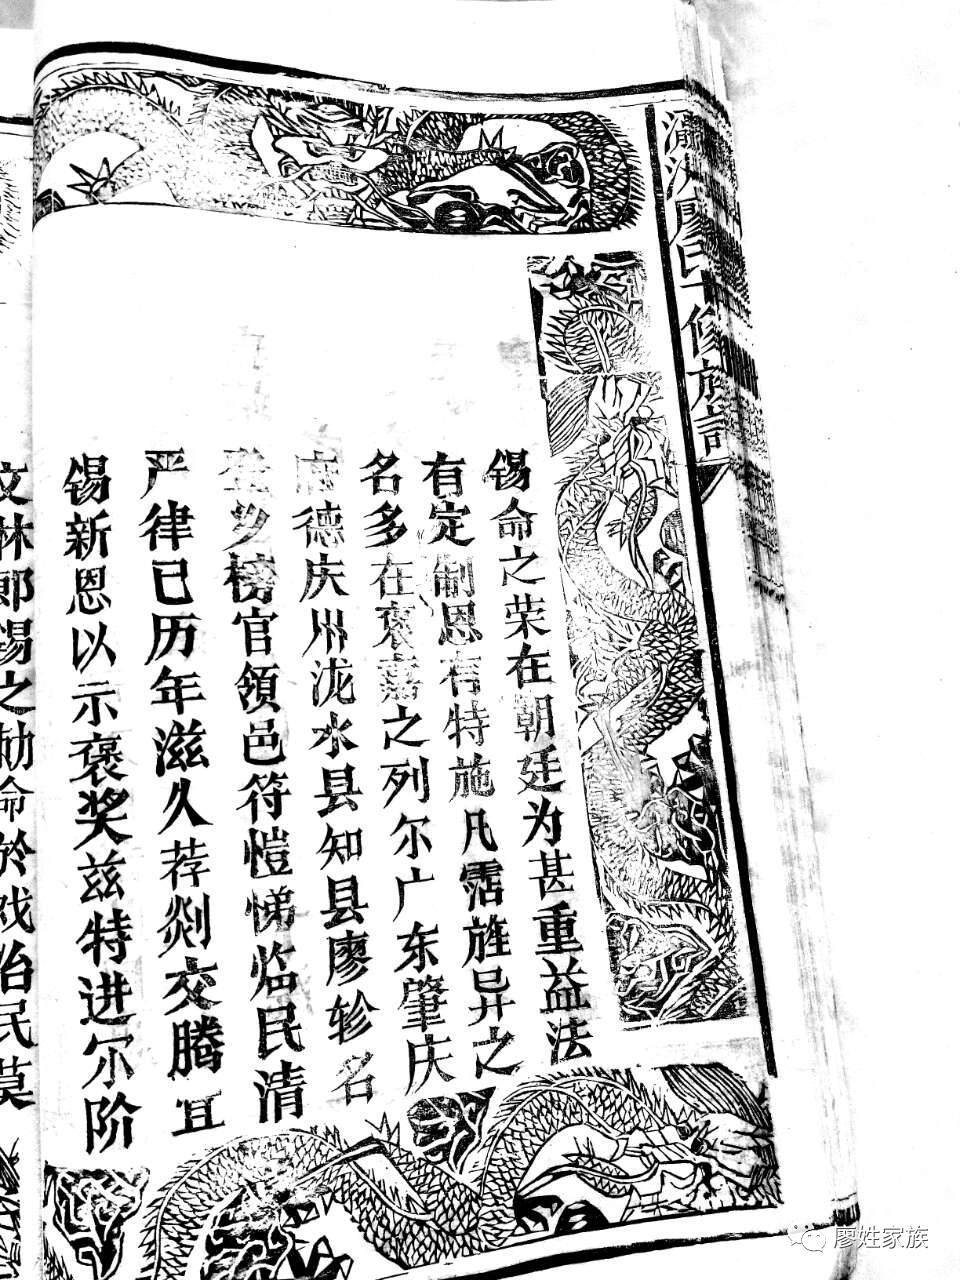 修族
锡命之荣在朝廷为甚重益法
有定制恩有特施凡霑旌异之
名多在褒嘉之列尔广东肇庆
府德庆州泷水县知县廖轸名
登乡榜官領邑符恺悌临民清
严律已历年滋久荐剡交腾宜
锡新恩以示褒奖兹特进尔阶
文林郎锡之勅命於戏治民莫
廖姓家族